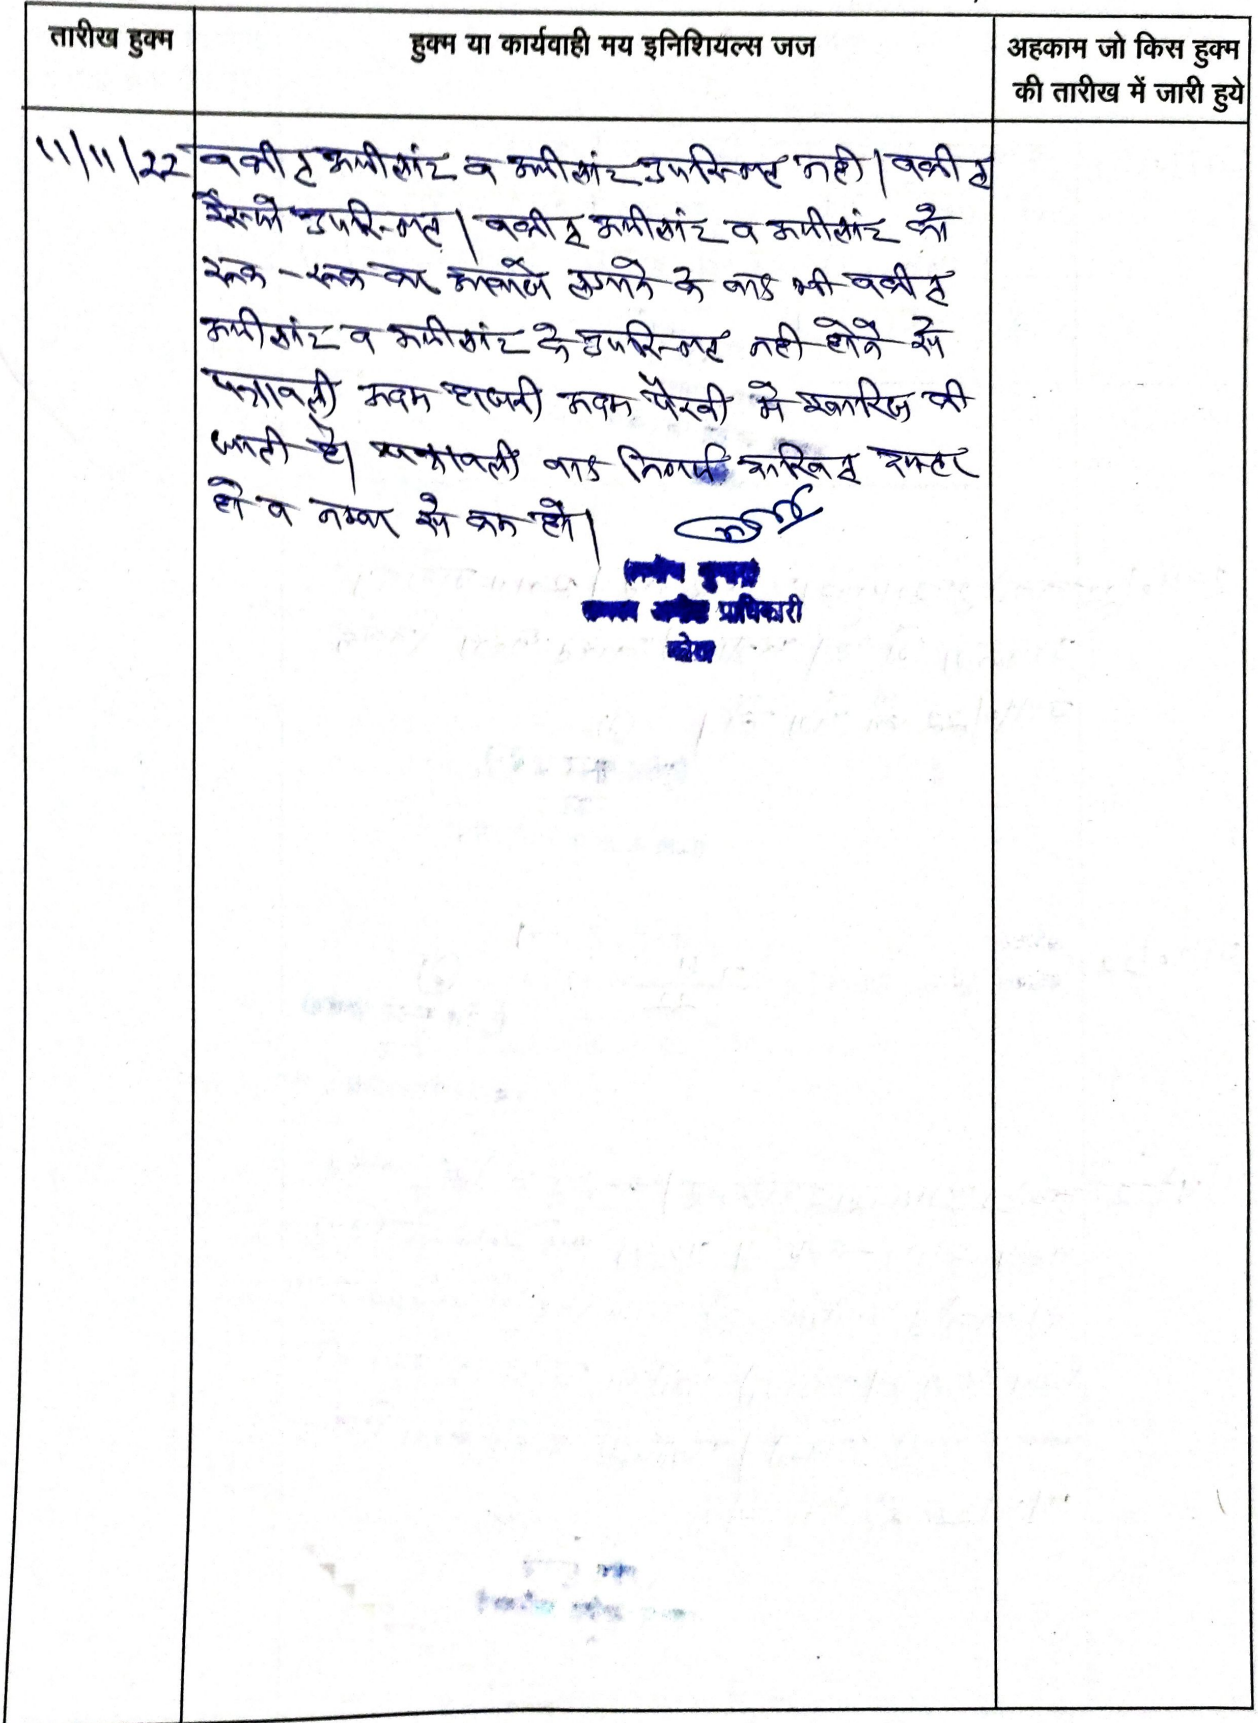 तारीख हुक्म
हुक्म या कार्यवाही मय इनिशियल्स जज
अहकाम जो किस हुक्म
की तारीख में जारी हुये
11/11/22 वकील अपीलांट व अपीलांट उपस्थित नही। वकील
रैस्पो उपस्थित। वकील अपीलांट व अपीलांट को
रूक-रूक कर आवाजे लगाने के बाद भी वकील
अपीलांट व अपीलांट के उपस्थित नही होने से
पत्रावली अदम हाजरी अदम पैरवी मे खारिज की
जाती है। पत्रावली बाद निर्णय दाखिल दफ्तर
हो व नम्बर से कम हो।
प्राधिकारी